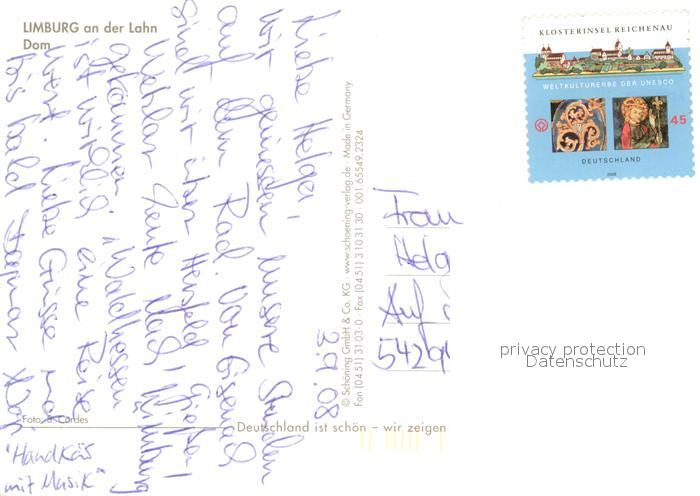 LIMBURG an der Lahn
Dom
KLOSTERINSEL REICHENAU
WELTKULTURERBE DER UNESCO
45
DEUTSCHLAND
2008
3.9.08
Liebe Helga,
wir geniessen unsere Stunden
auf dem Rad. Von Eisenach
sind wir über Hersfeld, Gießen,
Wetzlar heute nach Limburg
gekommen. Waldhessen
ist wirklich eine Reise
wert. Liebe Grüsse und
bis bald
"Handkäs
mit Musik"
© Schöning GmbH & Co. KG · www.schoening-verlag.de · Made in Germany
Fon (0451) 31 03-0 · Fax (0451) 3 10 31 30 · 001 65549 2324
Frau
Helg
Auf
54294
privacy protection
Datenschutz
Foto: S. Cordes
Deutschland ist schön – wir zeigen